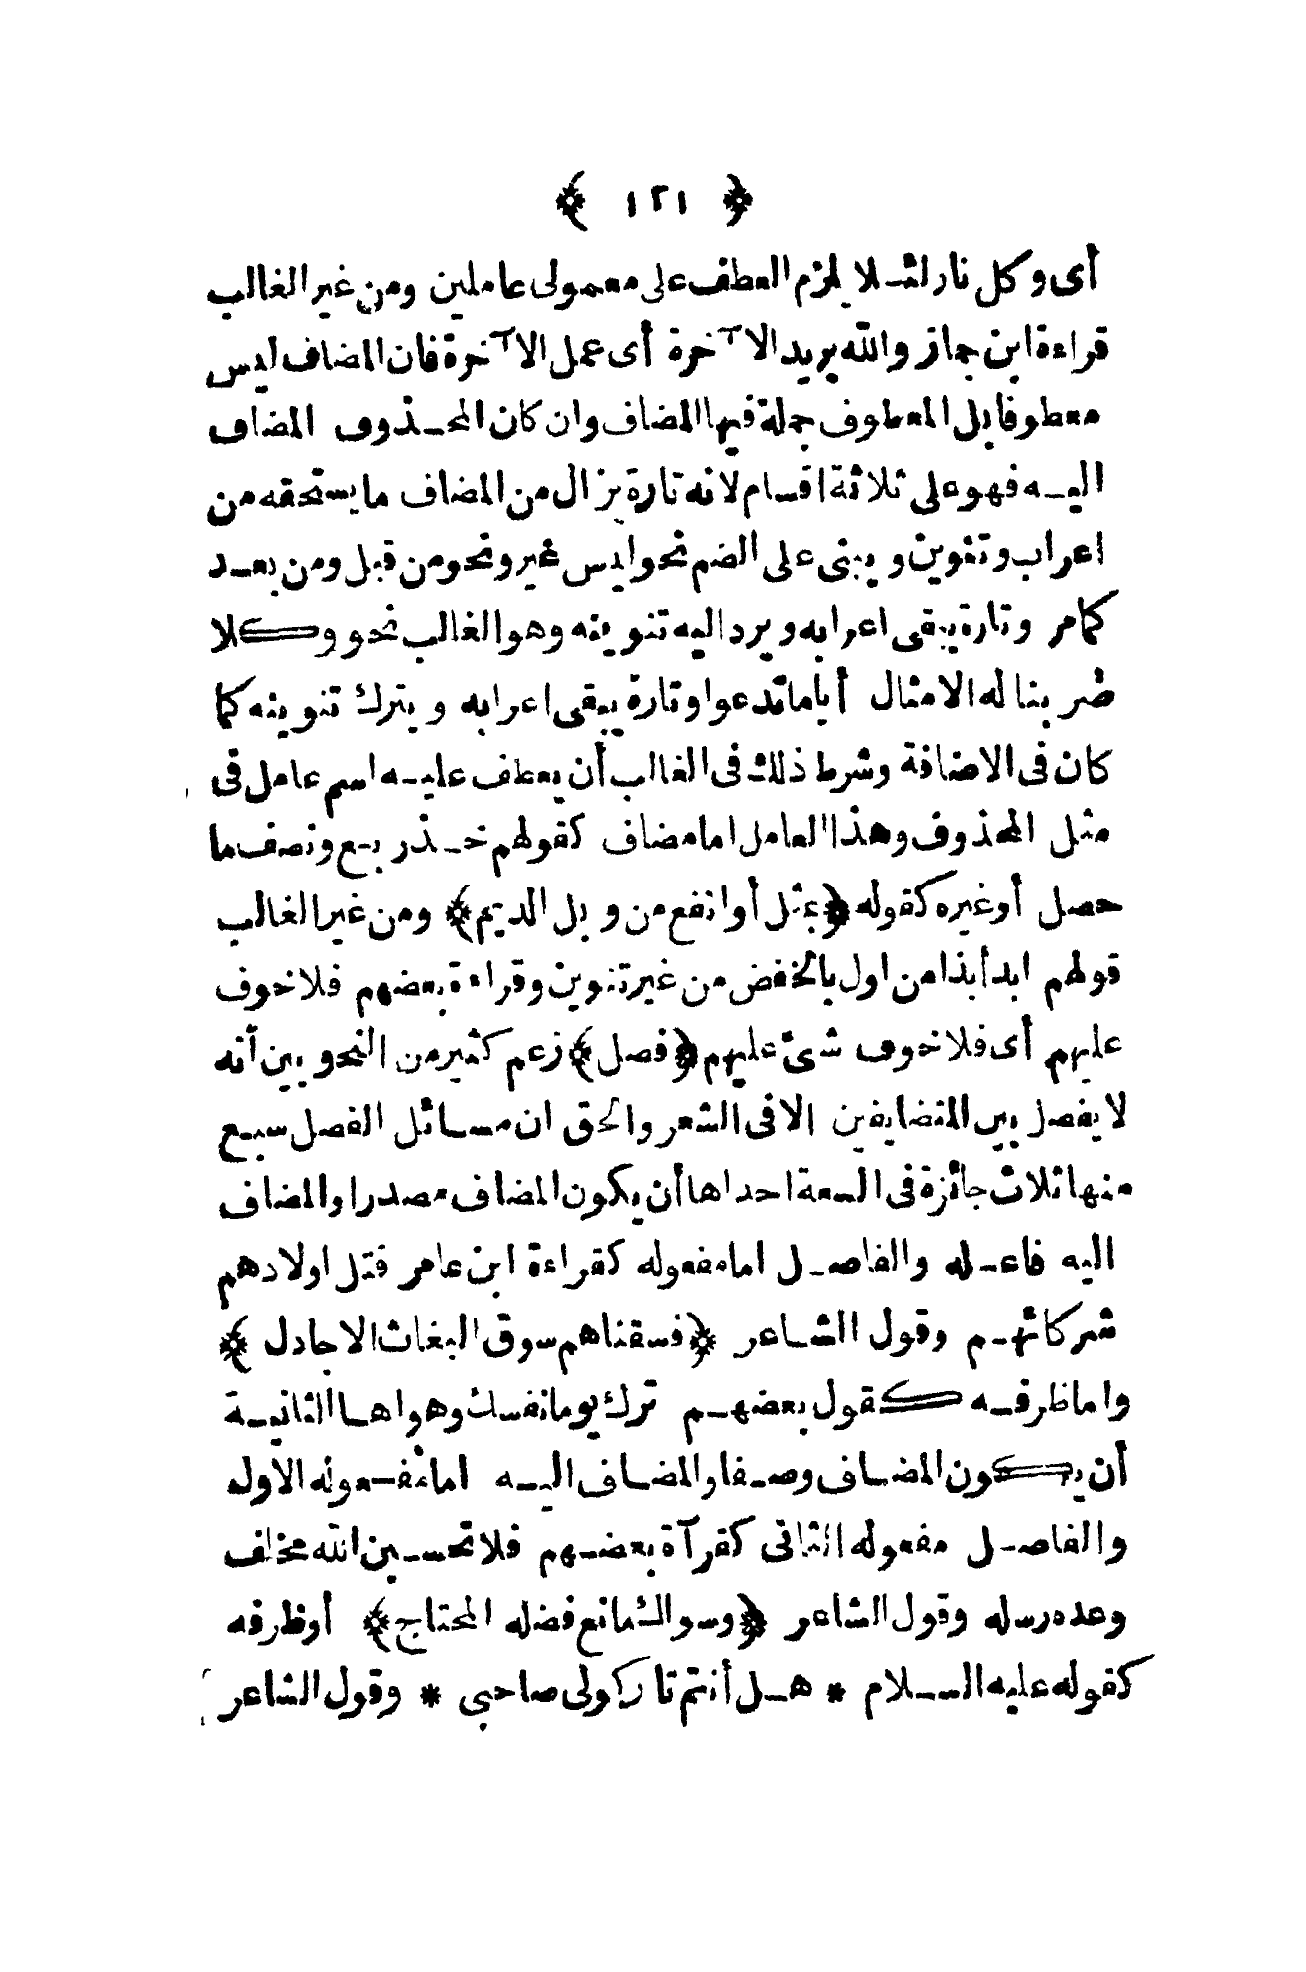 ﴿ ١٢١ ﴾
أى وكل نار لئلا يلزم العطف على معمولى عاملين ومن غير الغالب
قراءة ابن جماز والله يريد الآخرة أى عمل الآخرة فان المضاف ليس
معطوفا بل المعطوف جملة فيها المضاف وان كان المحذوف المضاف
اليه فهو على ثلاثة اقسام لانه تارة يزال من المضاف ما يستحقه من
اعراب وتنوين ويبنى على الضم نحو ليس غير ونحو من قبل ومن بعد
كمامر وتارة يبقى اعرابه ويرد اليه تنوينه وهو الغالب نحو وكلا
ضربنا له الامثال أياما تدعوا وتارة يبقى اعرابه ويترك تنوينه كما
كان فى الاضافة وشرط ذلك فى الغالب أن يعطف عليه اسم عامل فى
مثل المحذوف وهذا العامل اما مضاف كقولهم خذ ربع ونصف ما
حصل أو غيره كقوله ﴿بمثل أو انفع من وبل الديم﴾ ومن غير الغالب
قولهم ابدأ بذا من اول بالخفض من غير تنوين وقراءة بعضهم فلا خوف
عليهم أى فلا خوف شئ عليهم ﴿فصل﴾ زعم كثير من النحويين أنه
لا يفصل بين المتضايفين الا فى الشعر والحق ان مسائل الفصل سبع
منها ثلاث جائزة فى السعة احداها أن يكون المضاف مصدرا والمضاف
اليه فاعله والفاصل اما مفعوله كقراءة ابن عامر قتل اولادهم
شركائهم وقول الشاعر ﴿فسقناهم سوق البغاث الاجادل﴾
واما ظرفه كقول بعضهم ترك يوما نفسك وهواها الثانية
أن يكون المضاف وصفا والمضاف اليه اما مفعوله الاول
والفاصل مفعوله الثانى كقرآة بعضهم فلا تحسبن الله مخلف
وعده رسله وقول الشاعر ﴿وسواك مانع فضله المحتاج﴾ أو ظرفه
كقوله عليه السلام * هل أنتم تاركولى صاحبى * وقول الشاعر